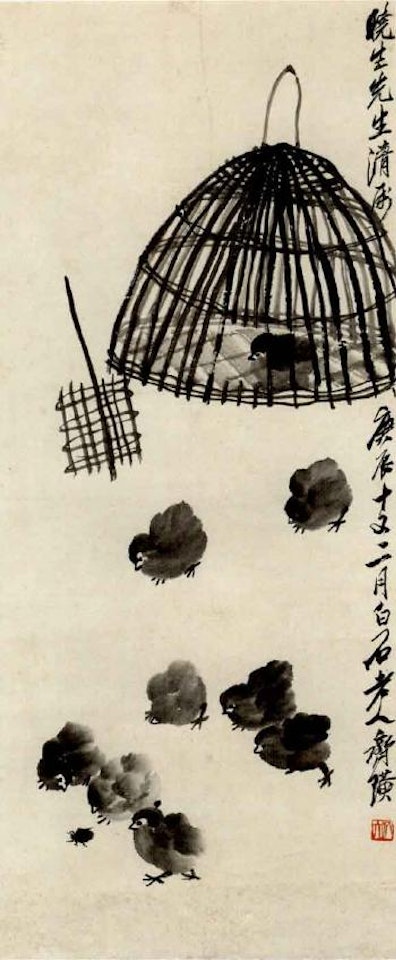 曉生先生清属
庚辰十又二月白石老人齊璜